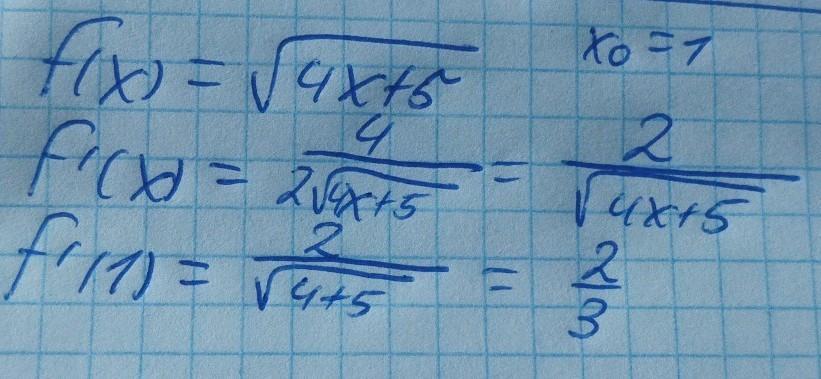 f(x) = √(4x+5) x₀ = 1
f'(x) = 4/(2√(4x+5)) = 2/√(4x+5)
f'(1) = 2/√(4+5) = 2/3